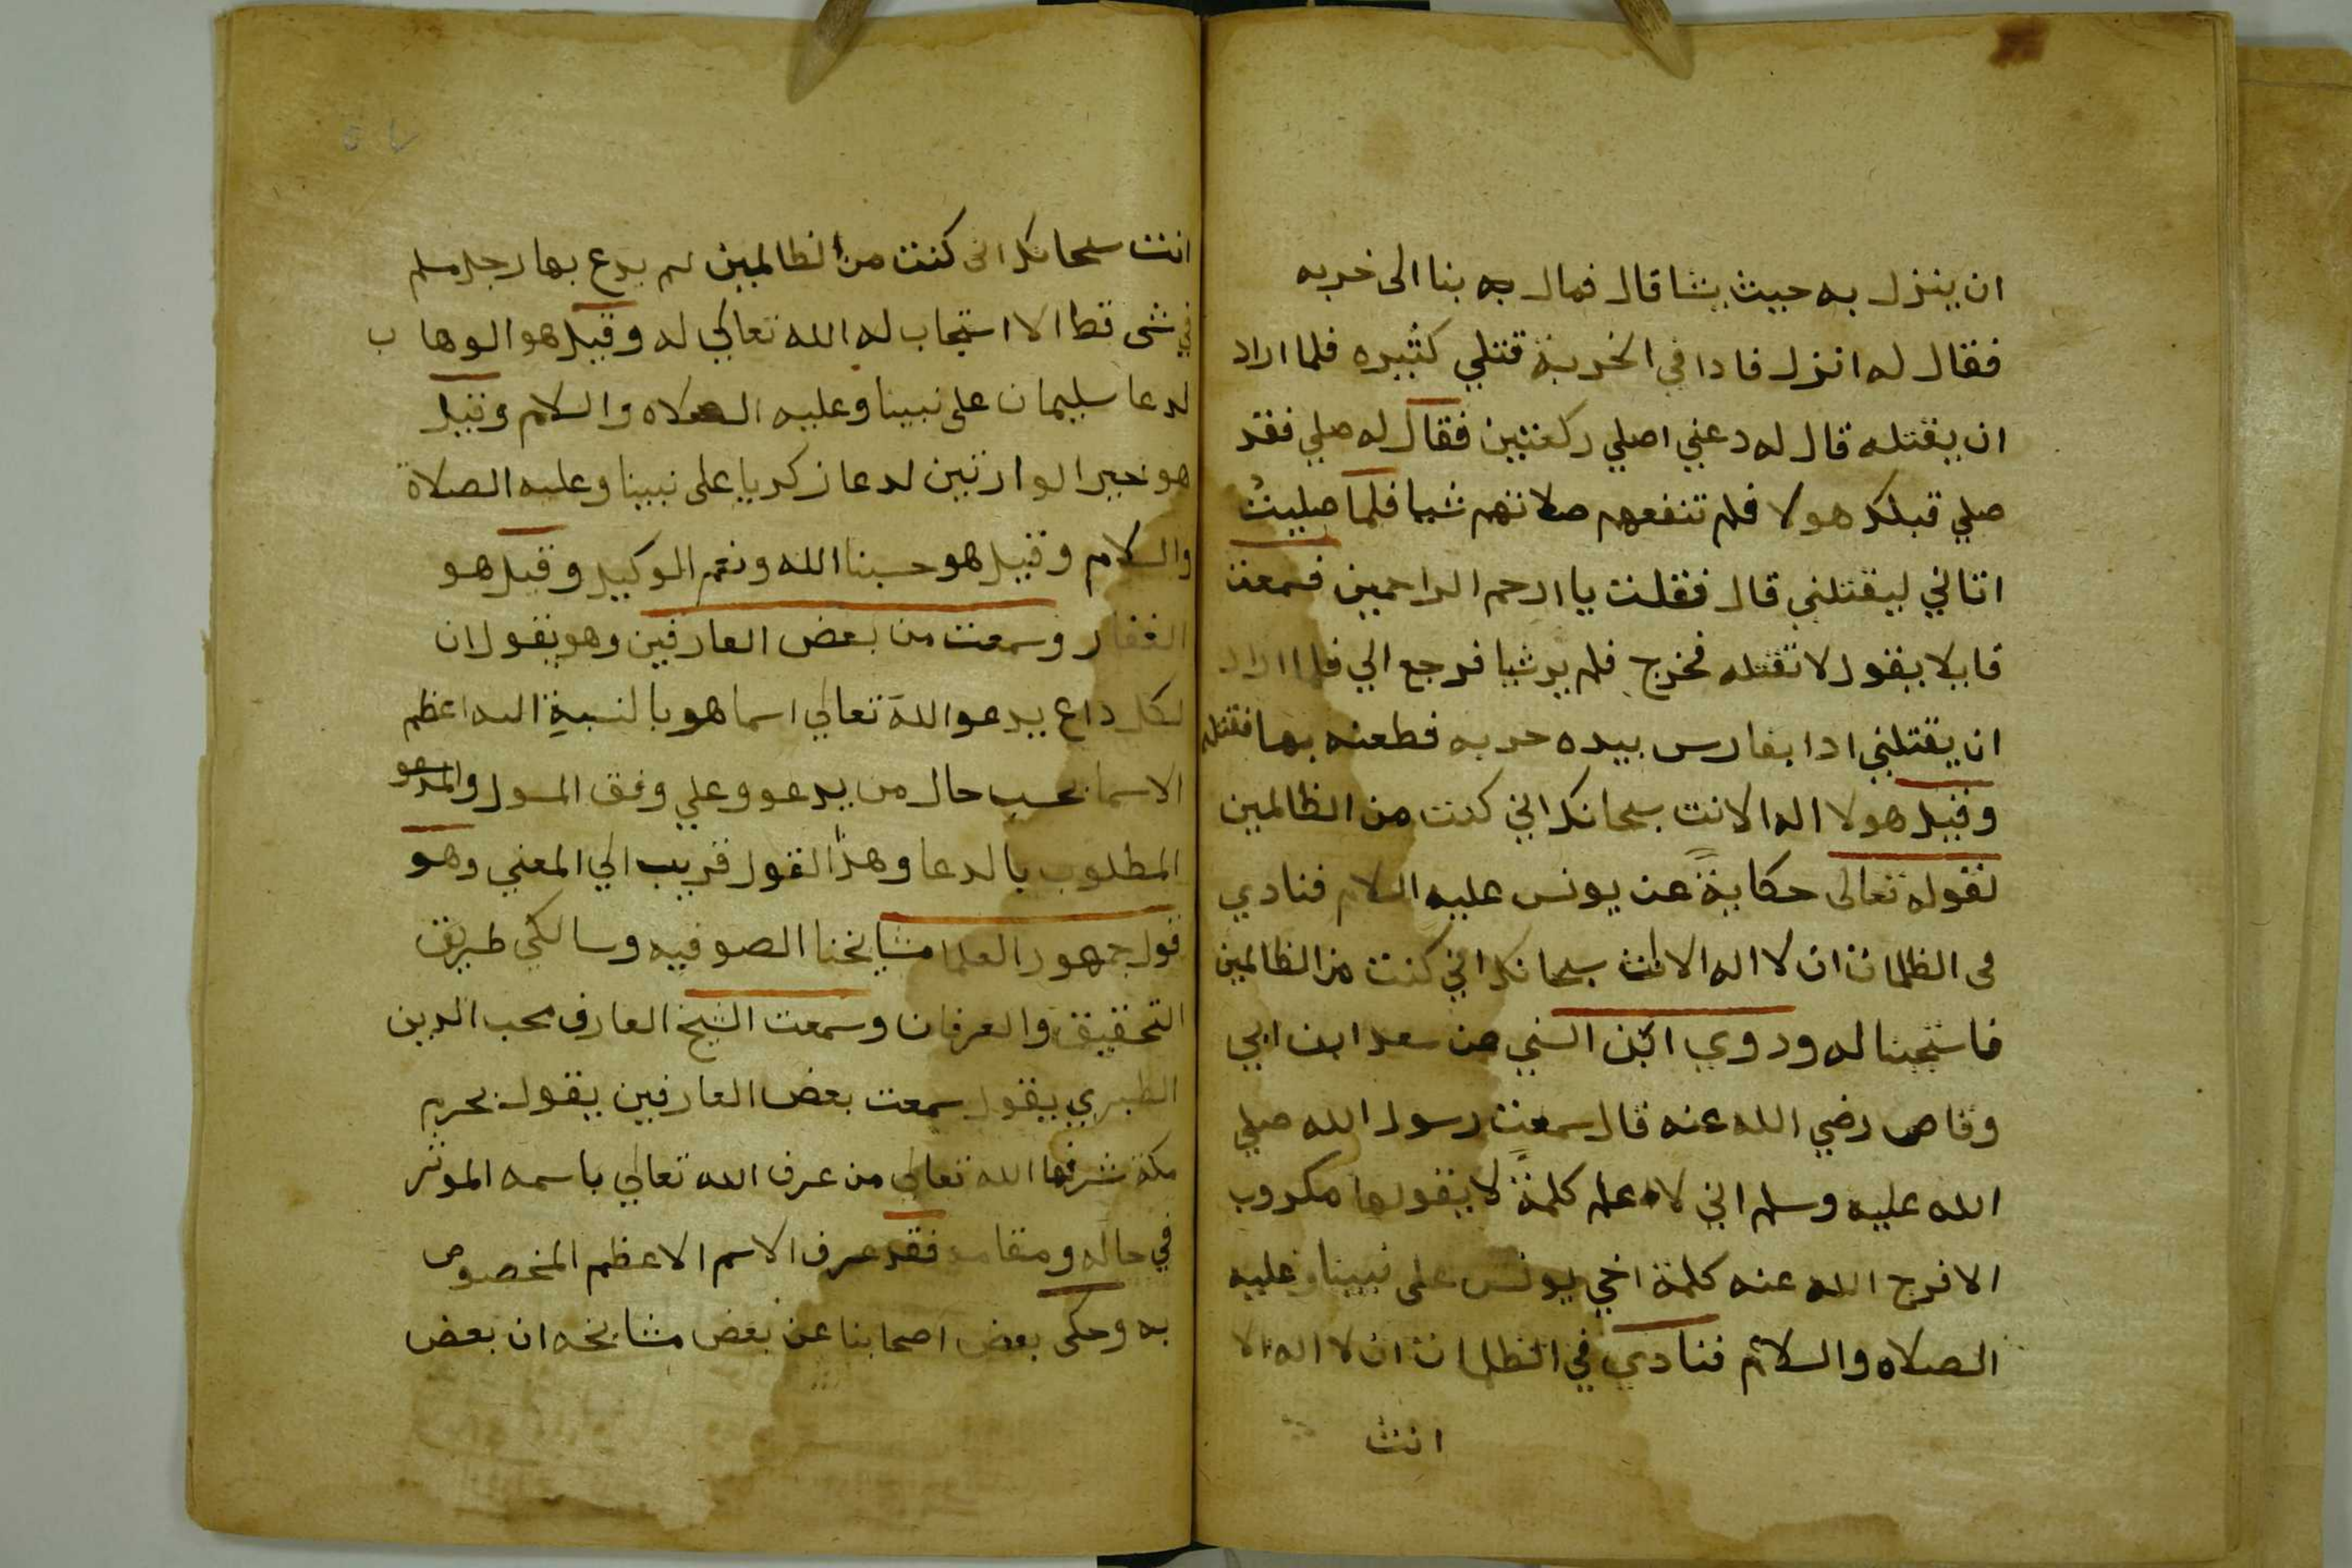 ان ينزل به حيث يشا قال فمال به بنا الى خربه
فقال له انزل فادا في الخربة قتلي كثيره فلما اراد
ان يقتله قال له دعني اصلي ركعتين فقال له صلي فقد
صلي قبلك هولا فلم تنفعهم صلاتهم شيا فلما صليتُ
اتاني ليقتلني قال فقلت يا ارحم الراحمين فسمعت
قايلا يقول لا تقتله فخرج فلم ير شيا فرجع الي فلما اراد
ان يقتلني ادا بفارس بيده حربه فطعنه بها فقتله
وقيل هو لا اله الا انت سبحانك اني كنت من الظالمين
لقوله تعالى حكايةً عن يونس عليه السلام فنادي
في الظلمات ان لا اله الا انت سبحانك اني كنت من الظالمين
فاستجبنا له وروي ابن السني من سعد ابن ابي
وقاص رضي الله عنه قال سمعت رسول الله صلي
الله عليه وسلم اني لاعلم كلمةً لا يقولها مكروب
الا فرج الله عنه كلمة اخي يونس على نبينا وعليه
الصلاه والسلام فنادي في الظلمات ان لا اله الا
انت
انت سبحانك اني كنت من الظالمين لم يدع بها رجل مسلم
في شي قط الا استجاب له الله تعالي له وقيل هو الوهاب
لدعا سليمان على نبينا وعليه الصلاه والسلام وقيل
هو خير الوارثين لدعا زكريا على نبينا وعليه الصلاة
والسلام وقيل هو حسبنا الله ونعم الوكيل وقيل هو
الغفار وسمعت من بعض العارفين وهو يقول ان
لكل داع يدعوا الله تعالي اسما هو بالنسبة اليه اعظم
الاسما بحسب حال من يدعو وعلي وفق المسول والمدعو
المطلوب بالدعا وهذا القول قريب الي المعني وهو
قول جمهور العلما مشايخنا الصوفيه وسالكي طريق
التحقيق والعرفان وسمعت الشيخ العارف محب الدين
الطبري يقول سمعت بعض العارفين يقول بحرم
مكة شرفها الله تعالي من عرف الله تعالي باسمه الموثر
في حاله ومقامه فقد عرف الاسم الاعظم المخصوص
به وحكى بعض اصحابنا عن بعض مشايخه ان بعض